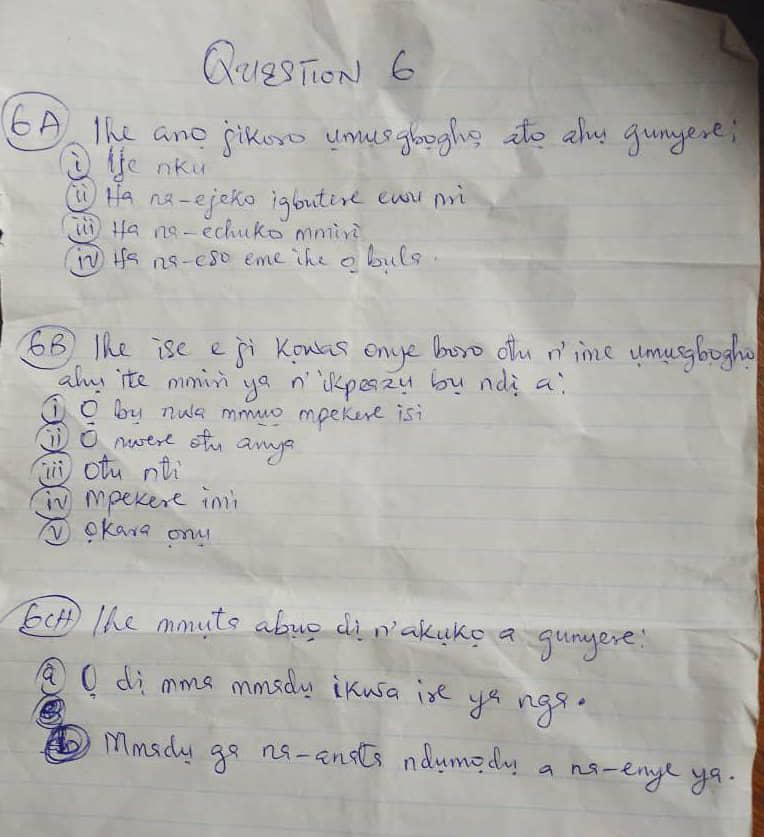 QUESTION 6
6A Ihe anọ jikọrọ ụmụagbọghọ atọ ahụ gụnyere;
i Ije nkụ
ii Ha na-ejeko igbutere ewu nri
iii Ha na-echuko mmiri
iv Ha na-eso eme ihe ọ bula.
6B Ihe ise e ji kọwaa onye boro otu n'ime ụmụagbọghọ
ahụ ite mmiri ya n'ikpeazụ bụ ndị a:
i Ọ bụ nwa mmuọ mpekere isi
ii O nwere otu anya
iii otu nti
iv mpekere imi
v ọkara ọnụ
6CH Ihe mmụta abụọ dị n'akụkọ a gụnyere:
a Ọ dị mma mmadụ ikwa ire ya nga.
b Mmadụ ga na-anata ndụmọdụ a na-enye ya.